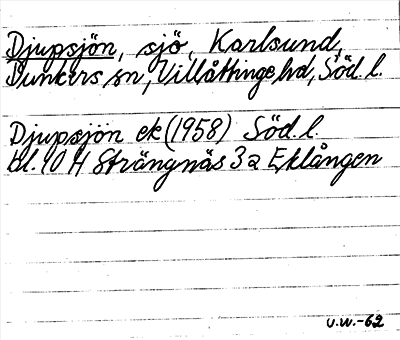 Djupsjön, sjö, Karlsund,
Dunkers sn, Villåttinge hd, Söd. l.
Djupsjön ek (1958) Söd. l.
bl. 10 H Strängnäs 3 a Eklången
U.W.-62